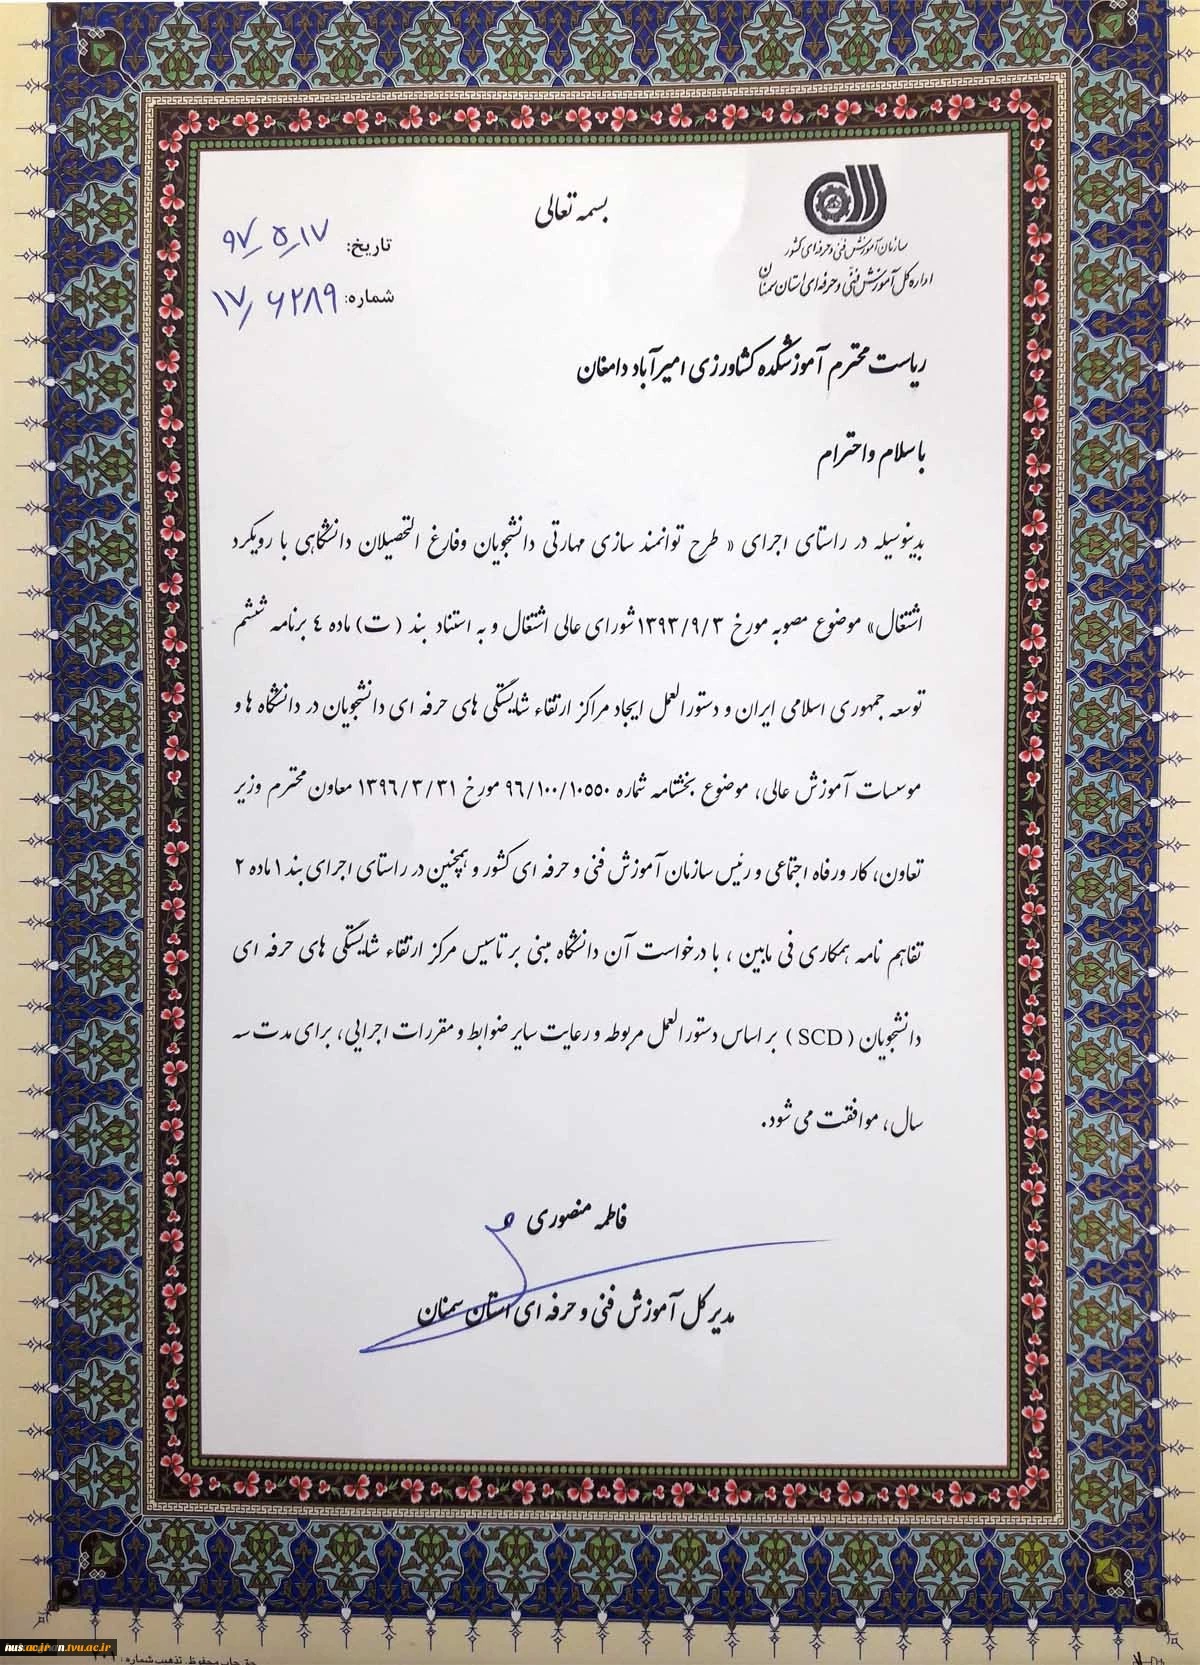 بسمه تعالی
سازمان آموزش فنی و حرفه ای کشور
اداره کل آموزش فنی و حرفه ای استان سمنان
تاریخ: ۹۷/۵/۱۷
شماره: ۱۷/۶۲۸۹
ریاست محترم آموزشکده کشاورزی امیرآباد دامغان
با سلام و احترام
بدینوسیله در راستای اجرای « طرح توانمند سازی مهارتی دانشجویان وفارغ التحصیلان دانشگاهی با رویکرد
اشتغال» موضوع مصوبه مورخ ۱۳۹۳/۹/۳ شورای عالی اشتغال و به استناد بند ( ت) ماده ٤ برنامه ششم
توسعه جمهوری اسلامی ایران و دستورالعمل ایجاد مراکز ارتقاء شایستگی های حرفه ای دانشجویان در دانشگاه ها و
موسسات آموزش عالی، موضوع بخشنامه شماره ۹٦/۱۰۰/۱۰۵۵۰ مورخ ۱۳۹٦/۳/۳۱ معاون محترم وزیر
تعاون، کار ورفاه اجتماعی و رئیس سازمان آموزش فنی و حرفه ای کشور و همچنین در راستای اجرای بند ۱ ماده ۲
تفاهم نامه همکاری فی مابین ، با درخواست آن دانشگاه مبنی بر تاسیس مرکز ارتقاء شایستگی های حرفه ای
دانشجویان ( SCD ) بر اساس دستورالعمل مربوطه و رعایت سایر ضوابط و مقررات اجرایی، برای مدت سه
سال، موافقت می شود.
فاطمه منصوری
مدیر کل آموزش فنی و حرفه ای استان سمنان
حق چاپ محفوظ. تذهیب شماره: